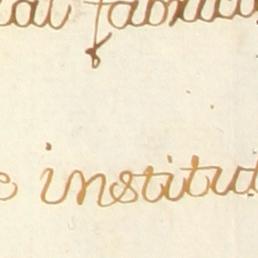 tal fabrica
e institut